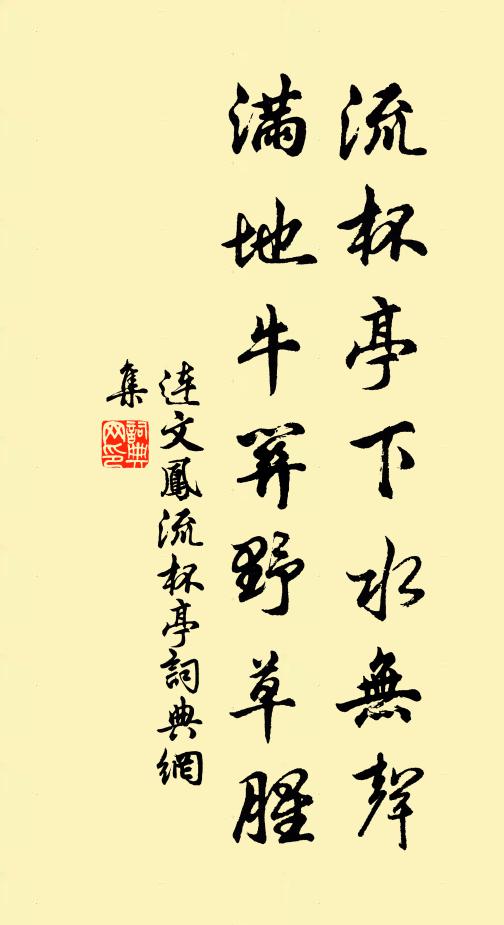 流杯亭下水無聲
滿地牛羊野草腥
連文鳳流杯亭詞典網
集
詞典
网印